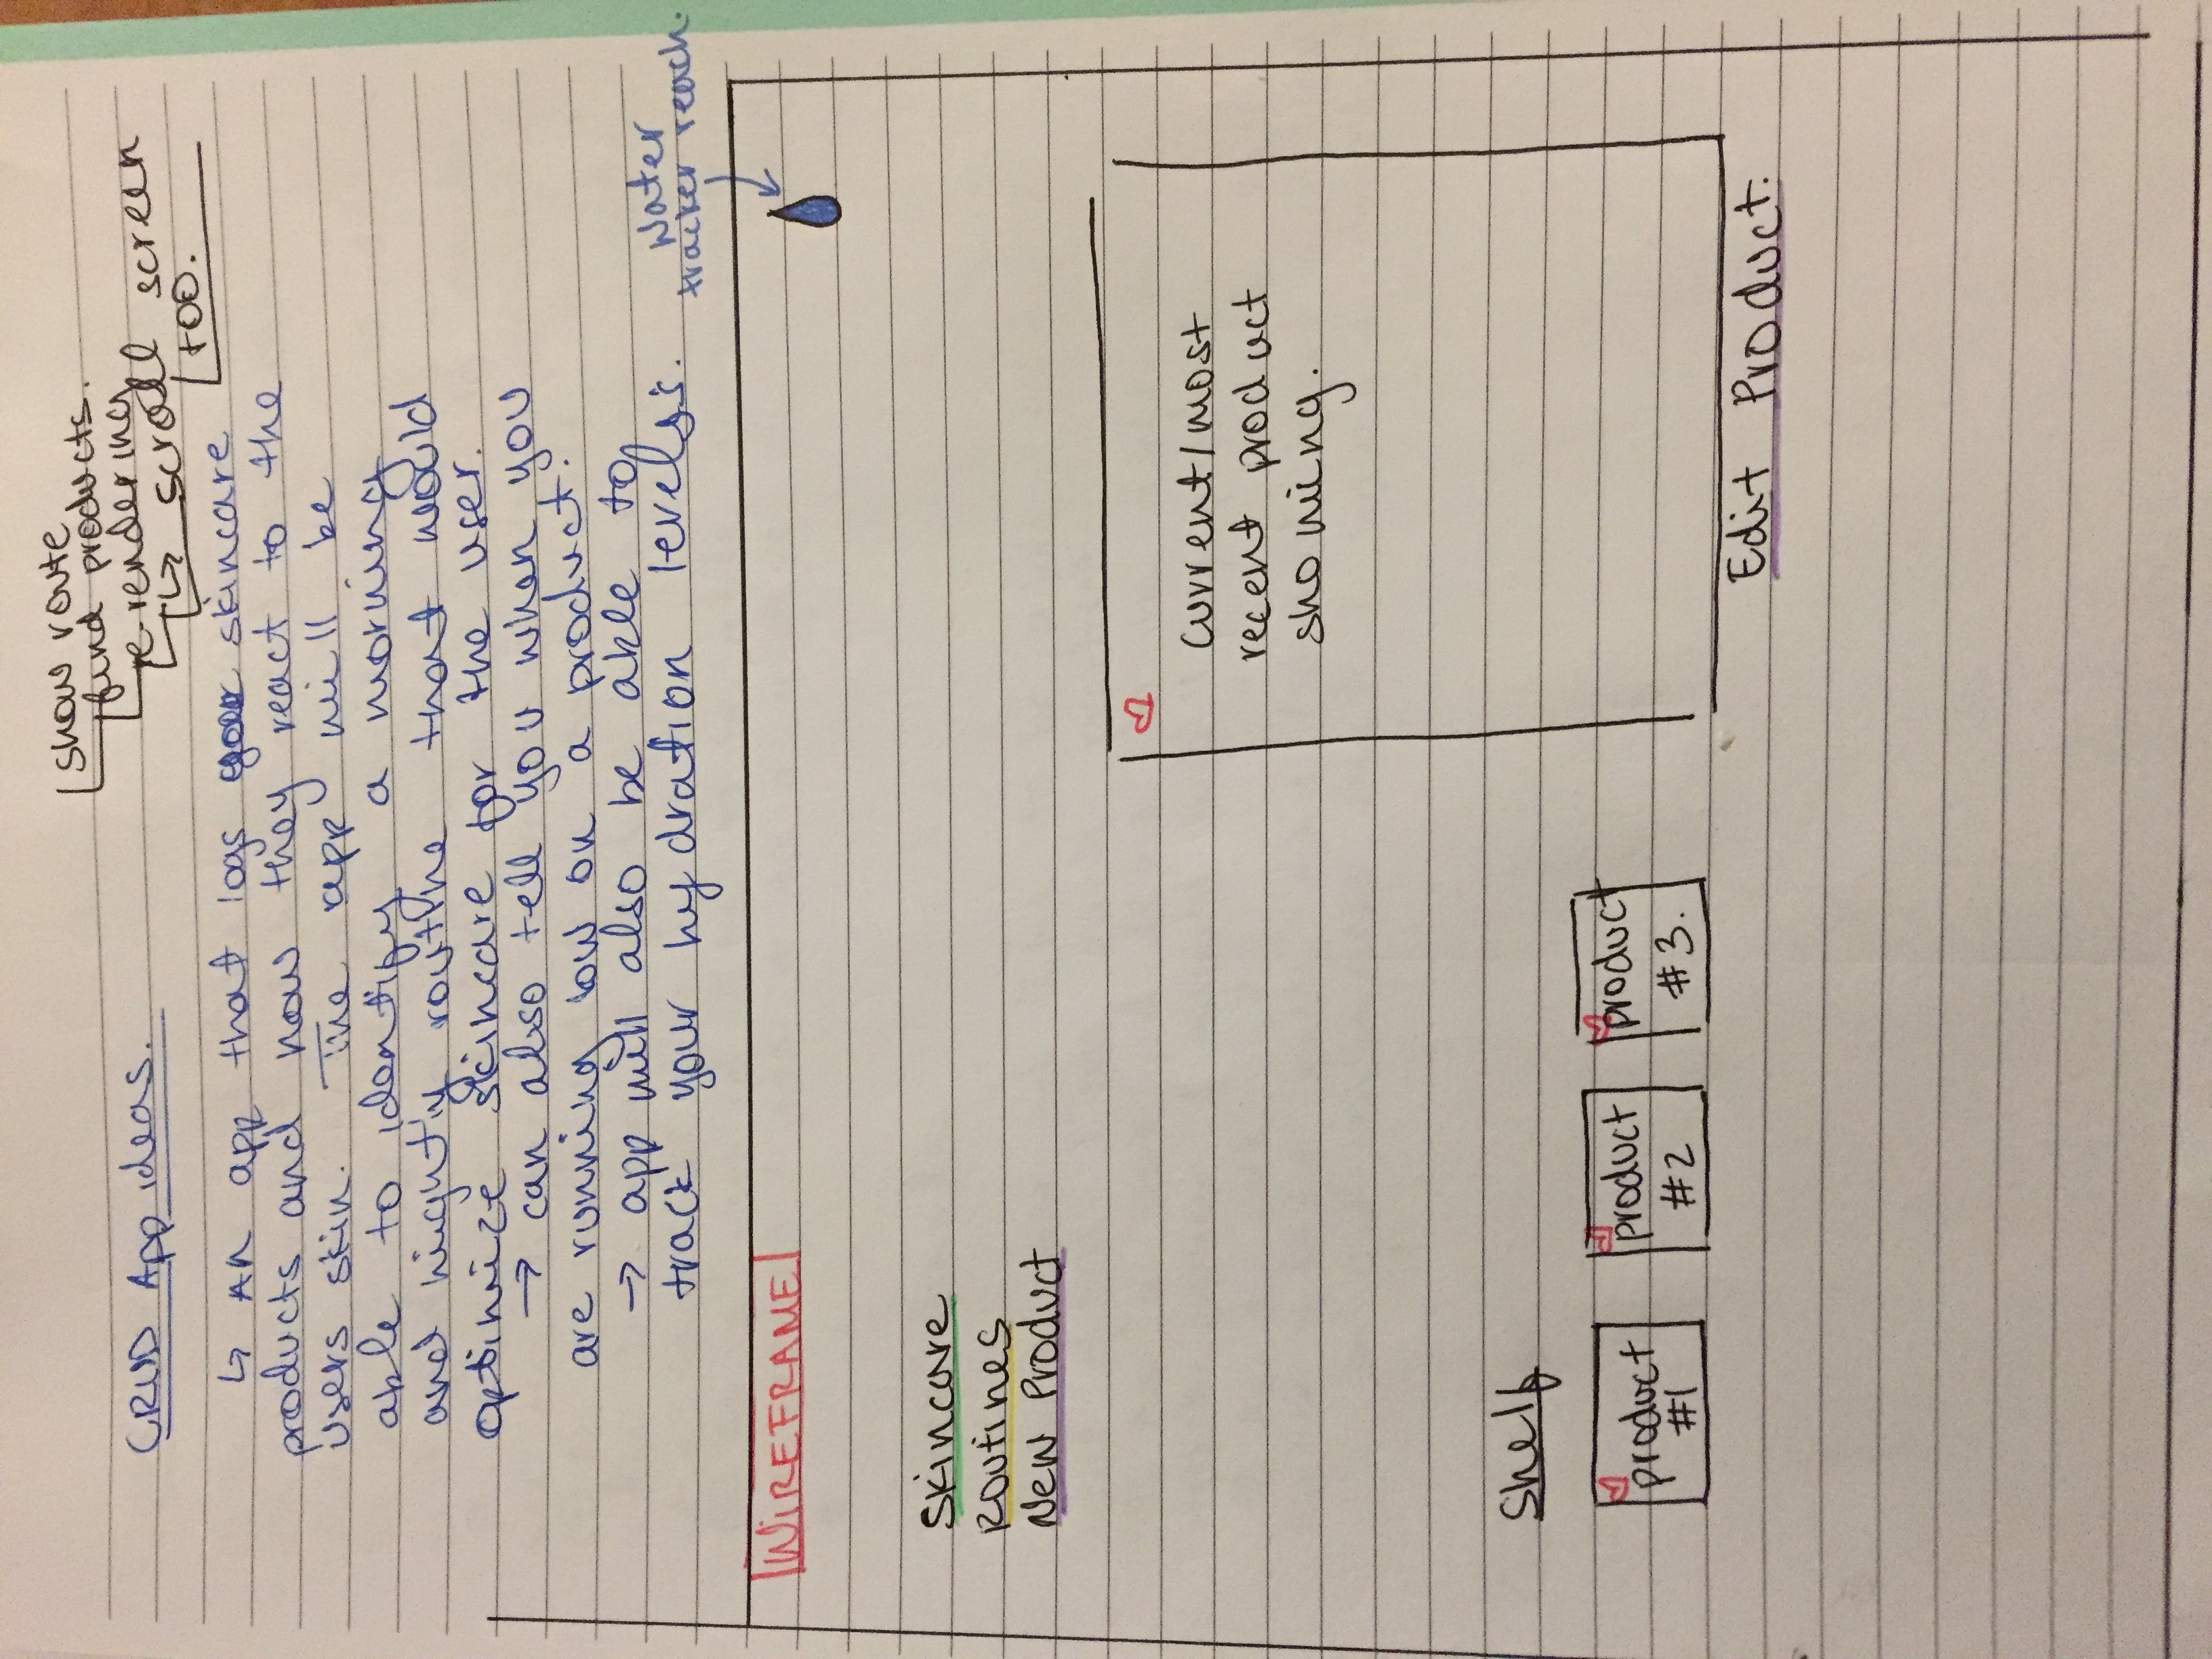 show route
find products.
re-rendering
↳ scroll screen
too.
CRUD App ideas.
↳ An app that logs skincare
products and how they react to the
users skin. The app will be
able to identify a morning
and nightly routine that would
optimize skincare for the user.
→ can also tell you when you
are running low on a product.
→ app will also be able to
track your hydration levels.
Water
tracker reach.
WIREFRAME
Skincare
Routines
New Product
Current/most
recent product
showing.
Shelf
product
#1
product
#2
product
#3.
Edit Product.